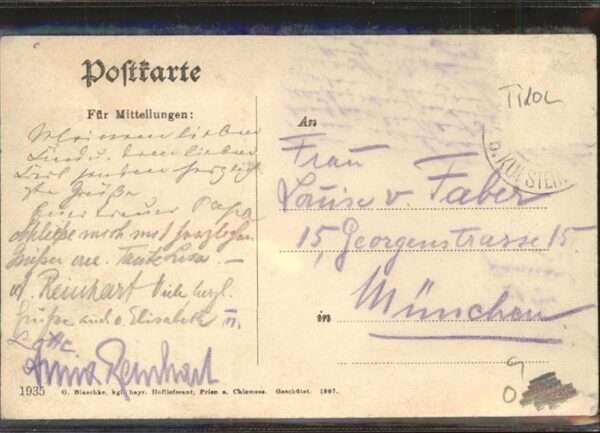 Postkarte
Für Mitteilungen:
Meinem lieben
Kind u. dem lieben
herzlich
Grüße
Euer treuer Papa
Schließe mich mit herzlichen
Grüßen an. Tante
Reinhart Viele herzl.
Grüße auch v. Elisabeth u.
Lotte.
Anna Reinhart
1935 G. Blaschke, kgl. bayr. Hoflieferant, Prien a. Chiemsee. Geschützt. 1907.
TIROL
KUFSTEIN
An
Frau
Louise v. Faber
15, Georgenstrasse 15.
in München